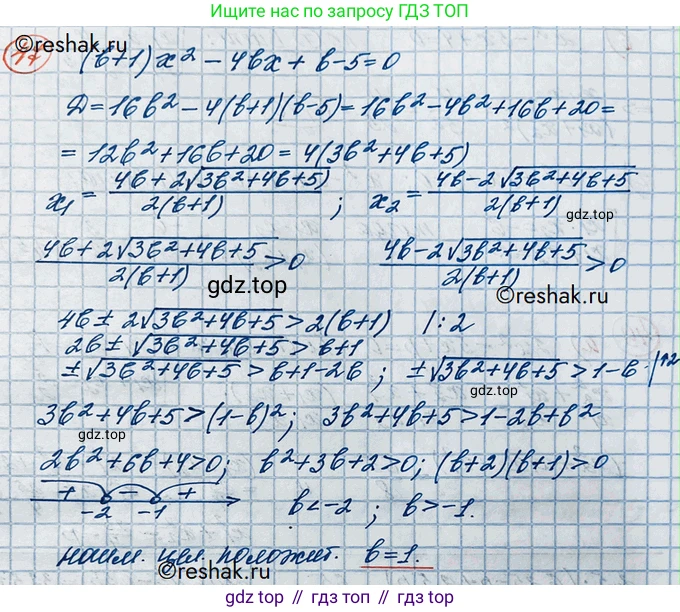 Ищите нас по запросу ГДЗ ТОП
©reshak.ru
17 (b+1)x² - 4bx + b-5=0
D=16b² - 4(b+1)(b-5)=16b²-4b²+16b+20=
= 12b²+16b+20 = 4(3b²+4b+5)
x₁ = (4b+2√(3b²+4b+5))/(2(b+1)) ; x₂ = (4b-2√(3b²+4b+5))/(2(b+1))
gdz.top
(4b+2√(3b²+4b+5))/(2(b+1)) >0 (4b-2√(3b²+4b+5))/(2(b+1)) >0
gdz.top
©reshak.ru
4b± 2√(3b²+4b+5) > 2(b+1) /:2
2b± √(3b²+4b+5) > b+1
±√(3b²+4b+5) > b+1-2b ; ±√(3b²+4b+5) > 1-b /↑2
gdz.top
3b²+4b+5 > (1-b)²; 3b²+4b+5 > 1-2b+b²
gdz.top
2b²+6b+4>0; b²+3b+2>0; (b+2)(b+1)>0
+ - +
-2 -1 b<-2 ; b>-1.
gdz.top
наим. цел. положит. b=1.
©reshak.ru
gdz.top
gdz top // гдз топ // гдз.топ